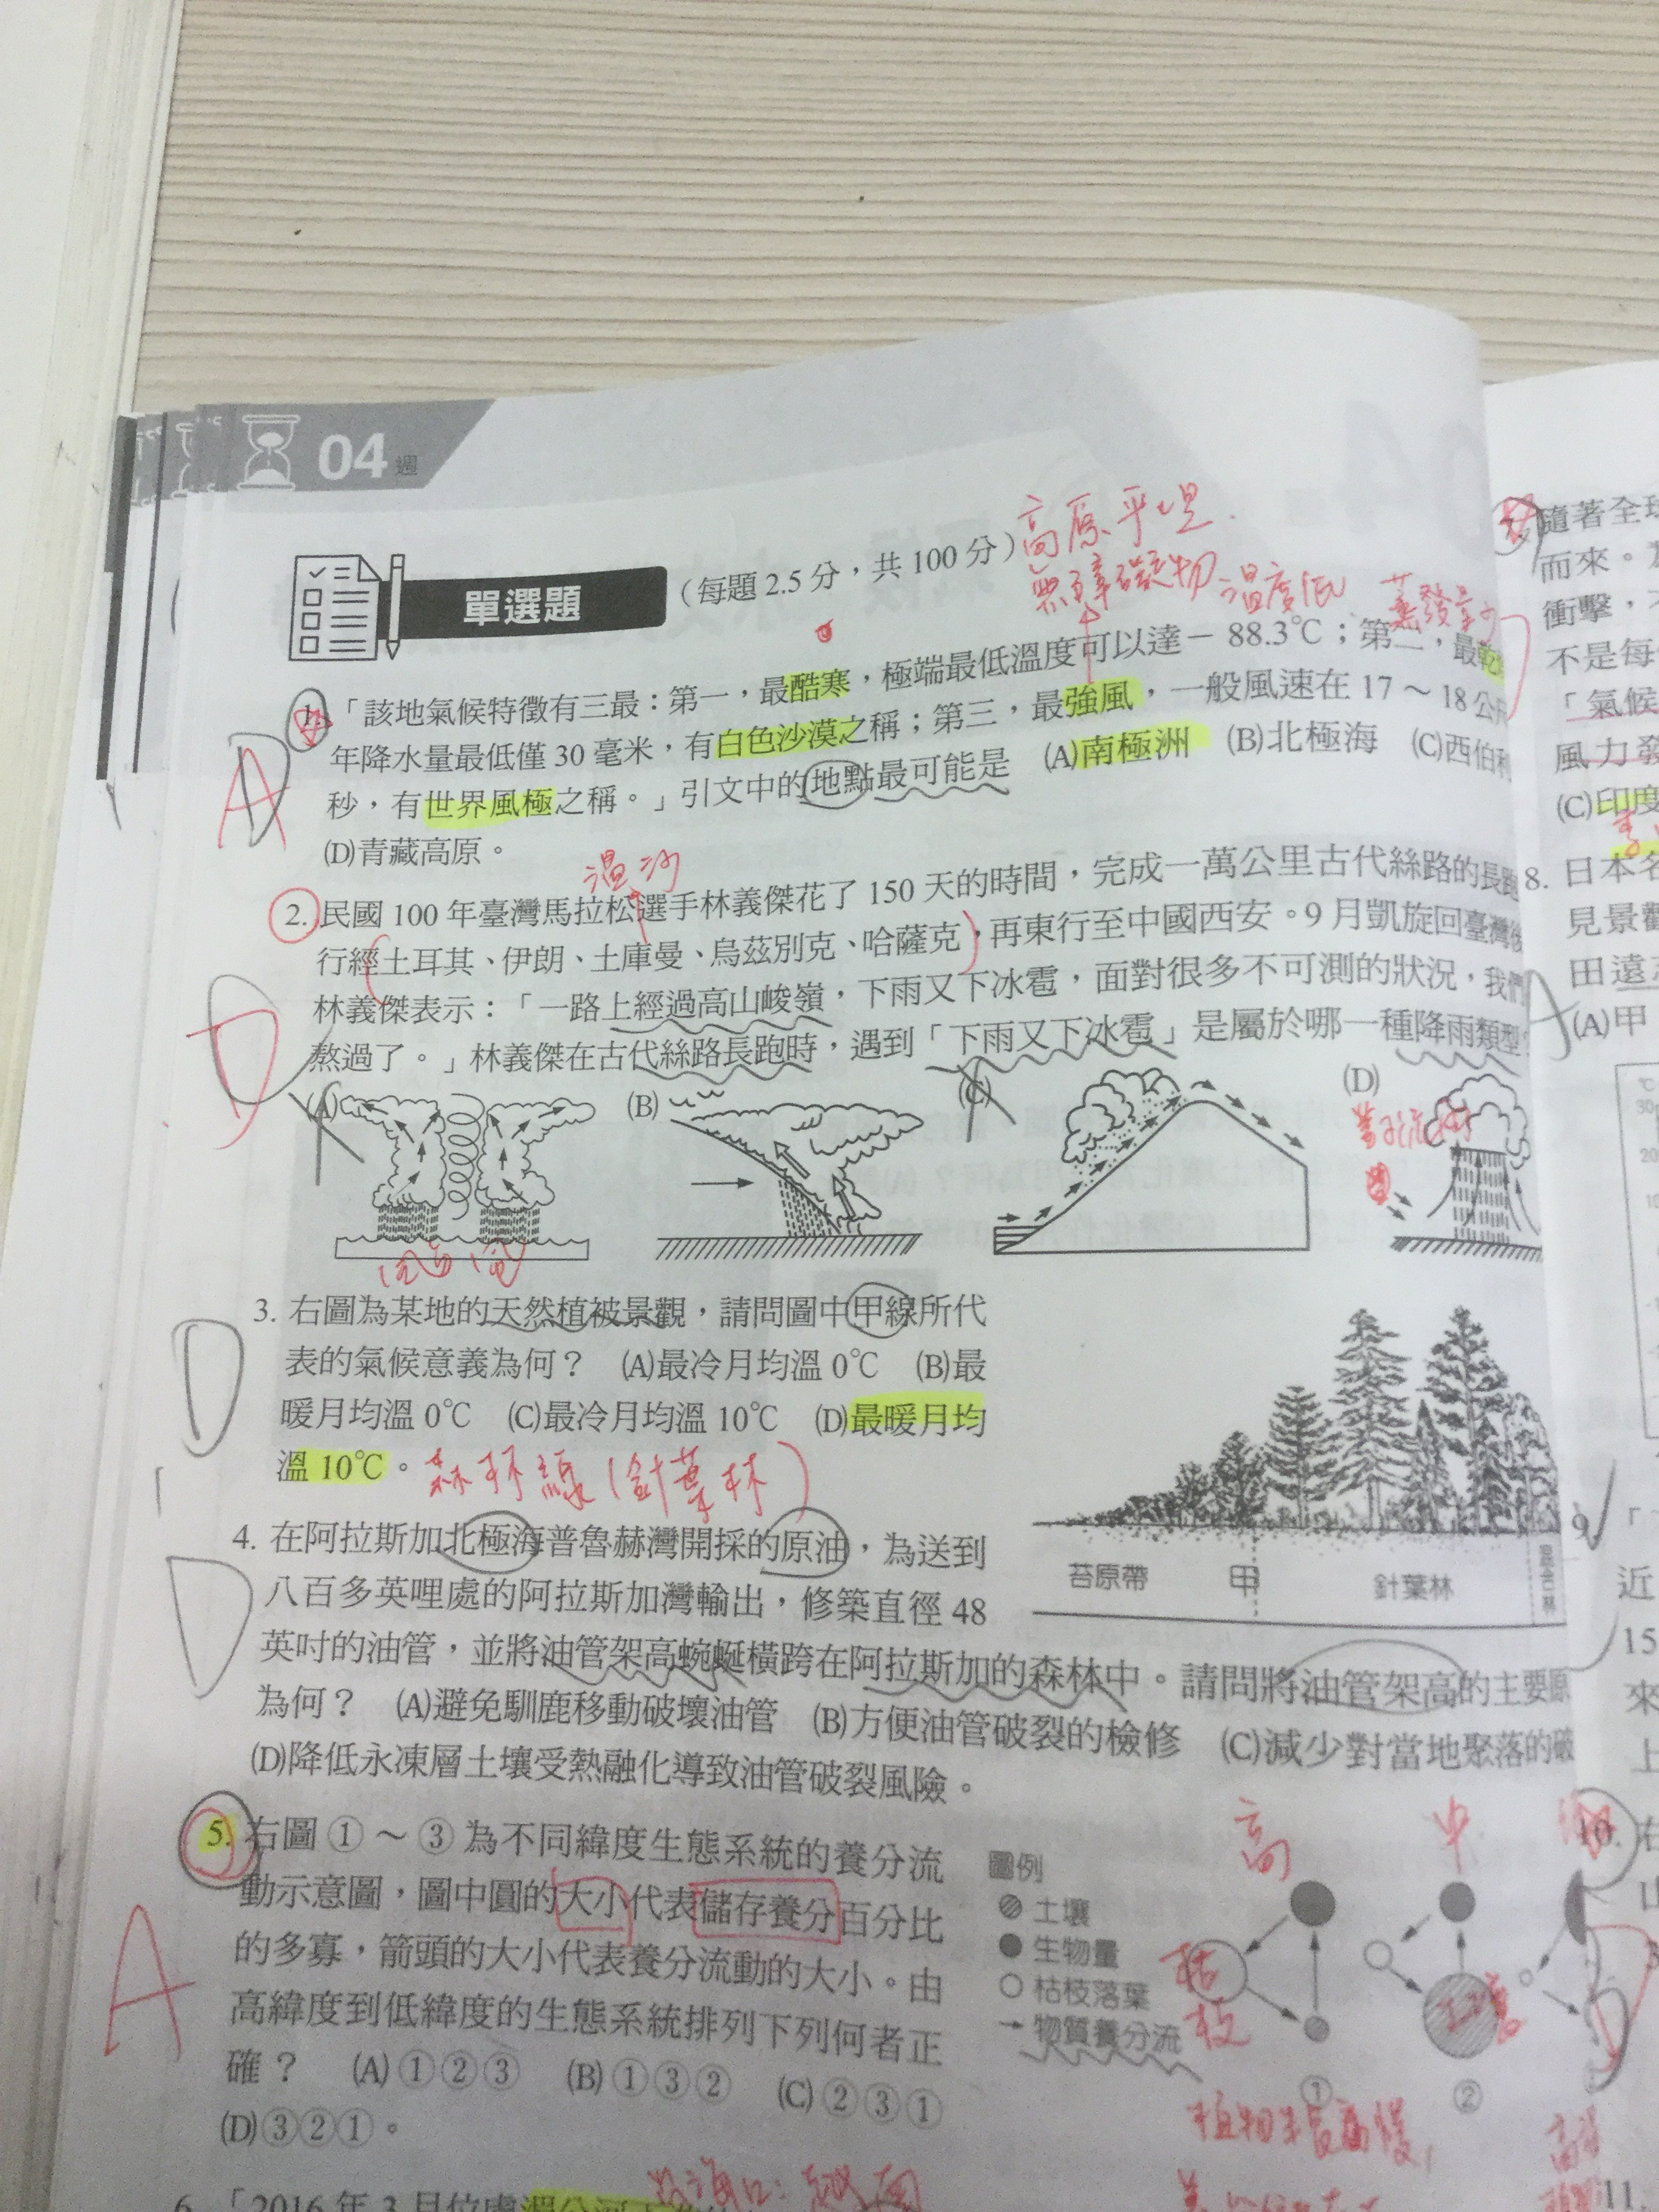 04 週
單選題 (每題2.5分,共100分)
高原平坦
無障礙物 溫度低 蒸發量少
1. 「該地氣候特徵有三最:第一,最酷寒,極端最低溫度可以達-88.3℃;第二,最乾
年降水量最低僅30毫米,有白色沙漠之稱;第三,最強風,一般風速在17~18公
秒,有世界風極之稱。」引文中的地點最可能是 (A)南極洲 (B)北極海 (C)西伯利
(D)青藏高原。
A
溫沙
2. 民國100年臺灣馬拉松選手林義傑花了150天的時間,完成一萬公里古代絲路的長跑
行經土耳其、伊朗、土庫曼、烏茲別克、哈薩克,再東行至中國西安。9月凱旋回臺灣後
林義傑表示:「一路上經過高山峻嶺,下雨又下冰雹,面對很多不可測的狀況,我們
熬過了。」林義傑在古代絲路長跑時,遇到「下雨又下冰雹」是屬於哪一種降雨類型?
D
(A) (B) (C) (D)
3. 右圖為某地的天然植被景觀,請問圖中甲線所代
表的氣候意義為何? (A)最冷月均溫0℃ (B)最
暖月均溫0℃ (C)最冷月均溫10℃ (D)最暖月均
溫10℃。 森林線(針葉林)
D
苔原帶 甲 針葉林 混合林
4. 在阿拉斯加北極海普魯赫灣開採的原油,為送到
八百多英哩處的阿拉斯加灣輸出,修築直徑48
英吋的油管,並將油管架高蜿蜒橫跨在阿拉斯加的森林中。請問將油管架高的主要原
為何? (A)避免馴鹿移動破壞油管 (B)方便油管破裂的檢修 (C)減少對當地聚落的破
(D)降低永凍層土壤受熱融化導致油管破裂風險。
D
5. 右圖①~③為不同緯度生態系統的養分流
動示意圖,圖中圓的大小代表儲存養分百分比
的多寡,箭頭的大小代表養分流動的大小。由
高緯度到低緯度的生態系統排列下列何者正
確? (A)①②③ (B)①③② (C)②③①
(D)③②①。
A
高 中
圖例
土壤
生物量
枯枝落葉
物質養分流
枯
枝
① ②
6. 「2016年3月位處湄公河
隨著全球
而來。
衝擊,
不是每
「氣候
風力發
(C)印度
8. 日本名
見景觀
田遠
(A)甲
℃
30
20
10
9. 「
近
15
來
上
10. 右
山
11.